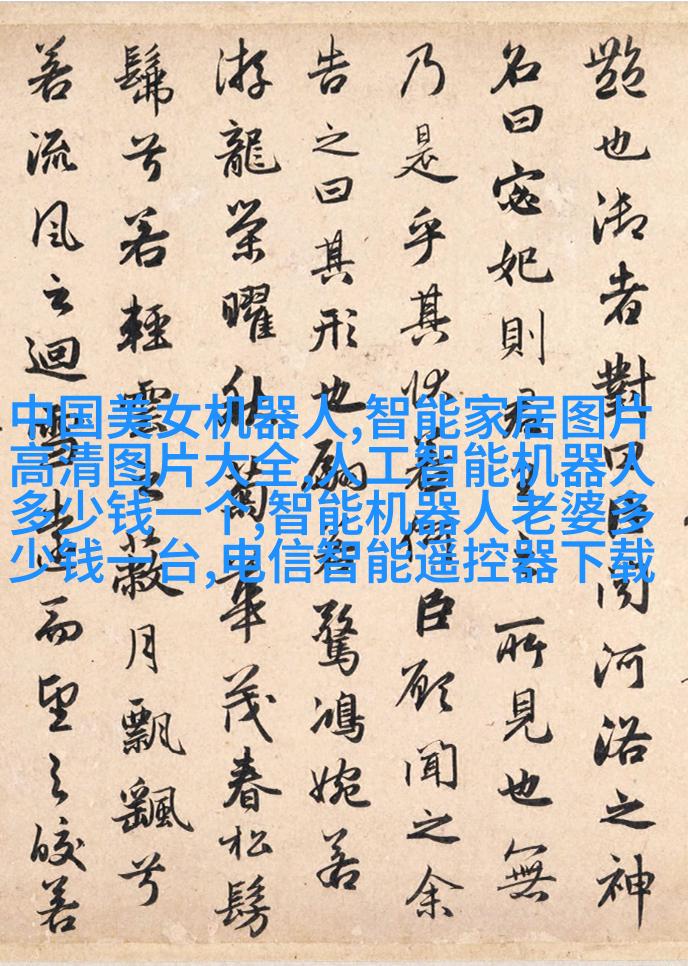 艷也御者對曰臣聞河洛之神
名曰宓妃則君王所見也無
乃是乎其狀若何臣願聞之余
告之曰其形也翩若驚鴻婉若
游龍榮曜秋菊華茂春松髣
髴兮若輕雲之蔽月飄颻兮
若流風之迴雪遠而望之皎若
中国美女机器人,智能家居图片
高清图片大全,人工智能机器人
多少钱一个,智能机器人老婆多
少钱一台,电信智能遥控器下载